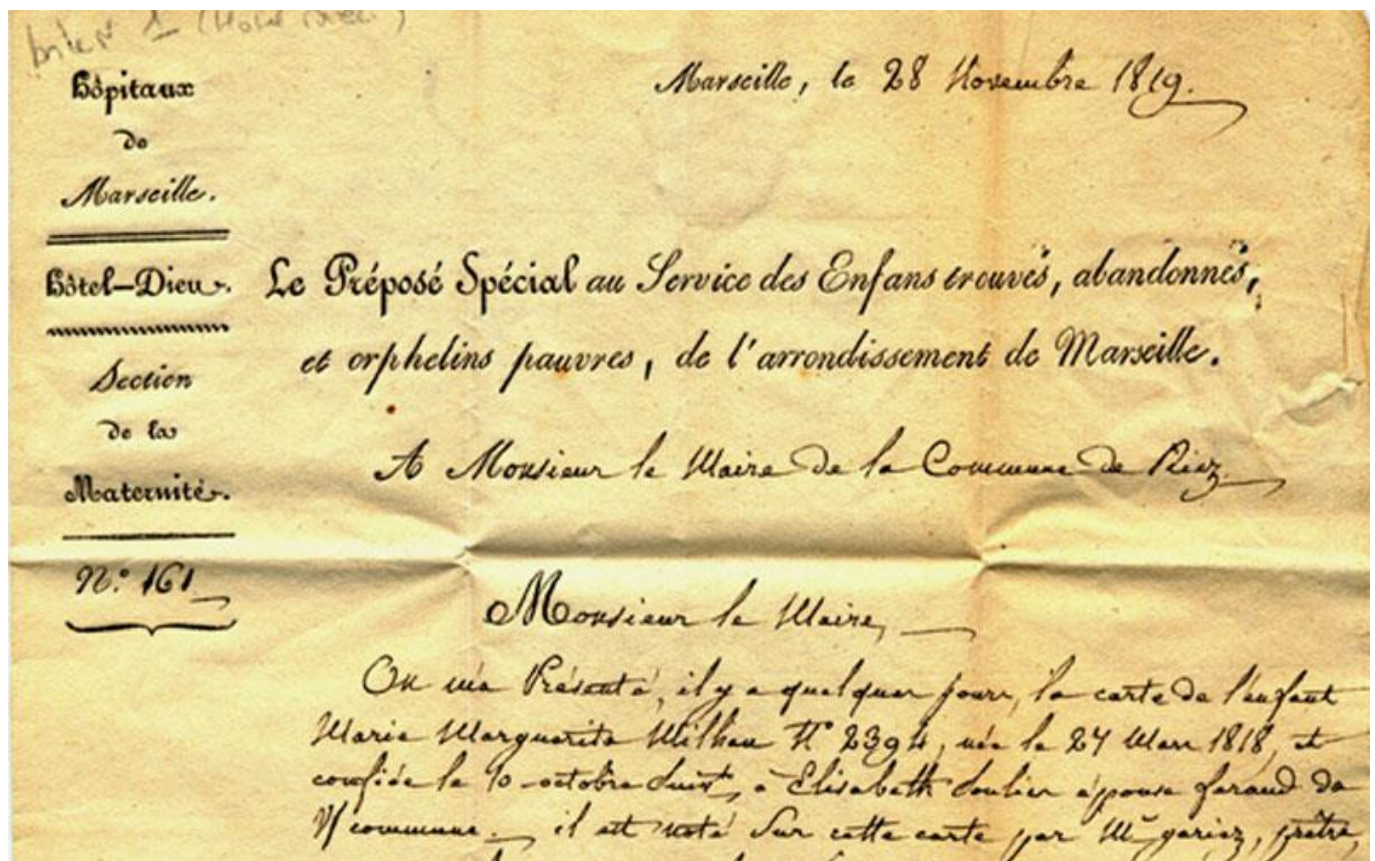 1 (Hotel
Hôpitaux
de
Marseille.
Hôtel-Dieu.
Section
de la
Maternité.
N.° 161
Marseille, le 28 Novembre 1819.
Le Préposé Spécial au Service des Enfans trouvés, abandonnés,
et orphelins pauvres, de l'arrondissement de Marseille.
A Monsieur le Maire de la Commune de Riez
Monsieur le Maire,
On m'a Présenté, il y a quelques jours, la carte de l'enfant
Marie Marguerite Milhau N° 2394, née le 27 Mars 1818, et
confiée le 10 octobre suivt, a Elisabeth Soulier épouse faraud de
V/ commune. il est noté sur cette carte par Mr gariez, prêtre,